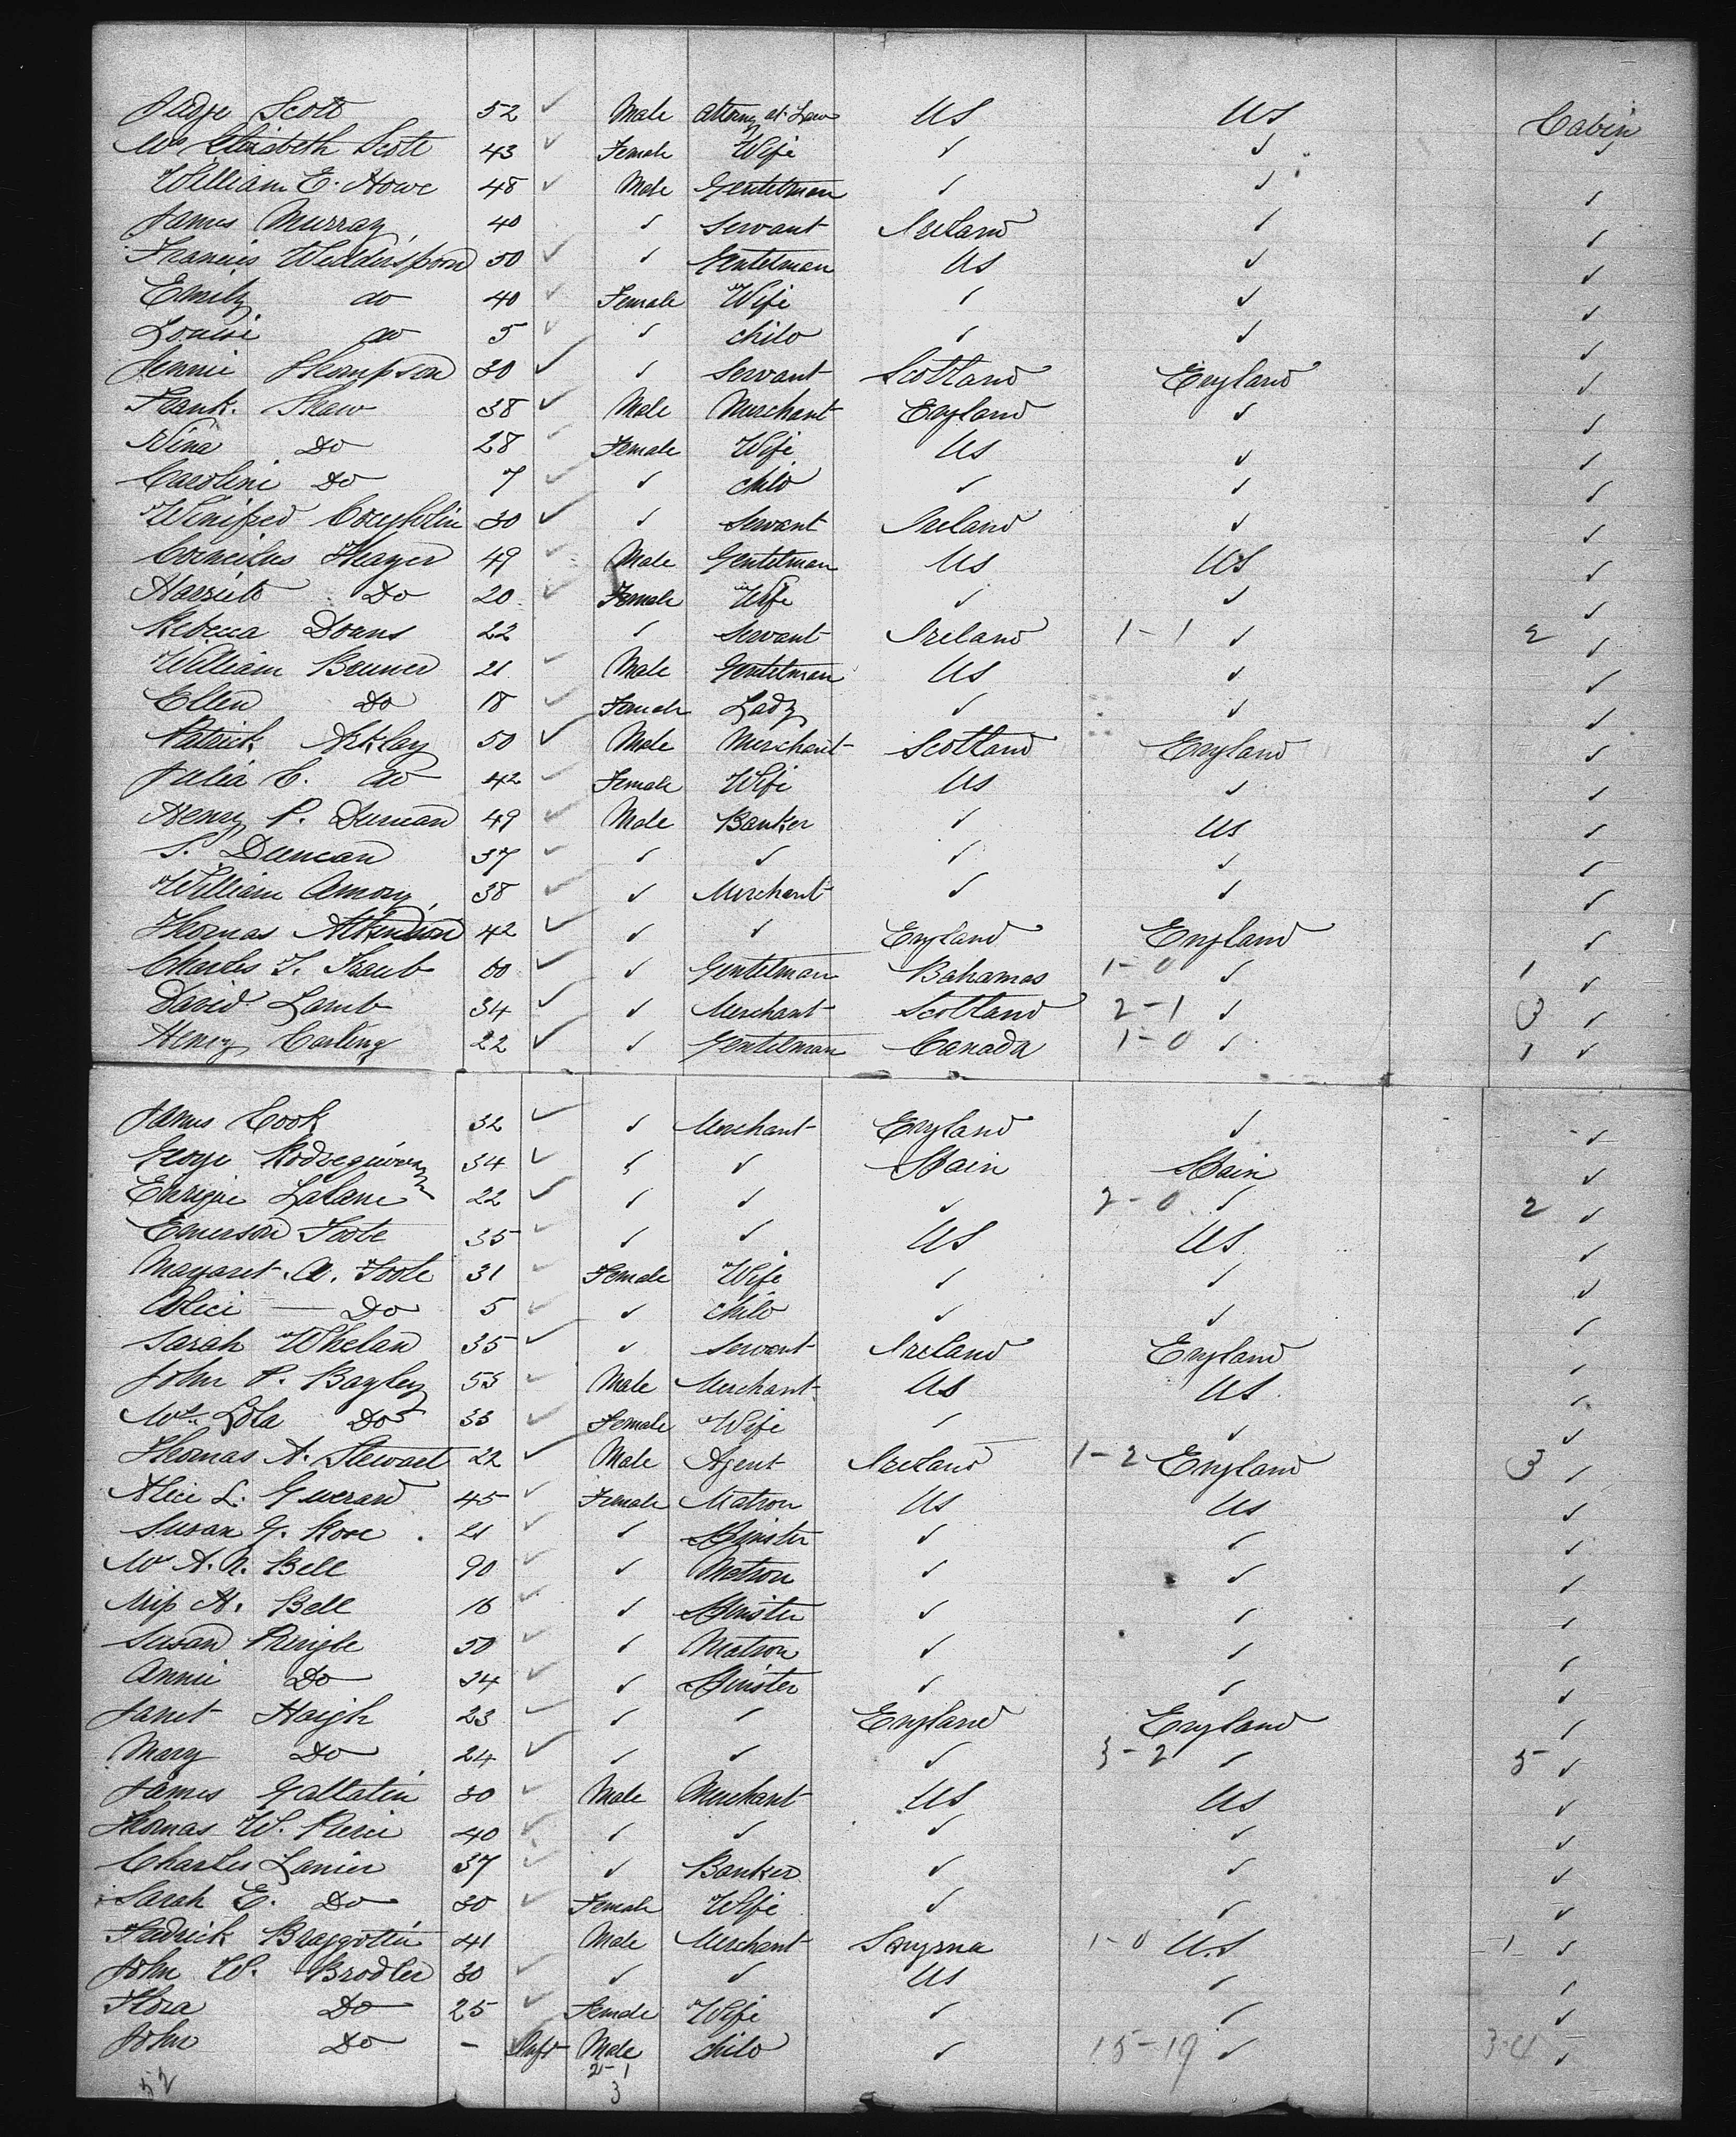 Judge Scott 52 ✓ Male Attorney at Law US US Cabin
Mrs Elizabeth Scott 43 ✓ Female Wife ✓ ✓ ✓
William E. Howe 48 ✓ Male Gentelman ✓ ✓ ✓
James Murray 40 ✓ Servant Ireland ✓ ✓
Francis Widderspoon 50 ✓ ✓ Gentelman US ✓ ✓
Emily do 40 ✓ Female Wife ✓ ✓ ✓
Louise do 5 ✓ ✓ child ✓ ✓ ✓
Jennie Thompson 30 ✓ ✓ Servant Scotland England ✓
Frank Shaw 38 ✓ Male Merchant England ✓ ✓
Nina Do 28 ✓ Female Wife US ✓ ✓
Caroline Do 7 ✓ ✓ child ✓ ✓ ✓
Winifred Coughlin 30 ✓ ✓ Servant Ireland ✓ ✓
Cornelius Thayer 49 ✓ Male Gentelman US US ✓
Harriet Do 20 ✓ Female Wife ✓ ✓ ✓
Rebecca Doans 22 ✓ Servant Ireland 1-1 ✓ 2 ✓
William Bouner 21 ✓ Male Gentelman US ✓ ✓
Ellen Do 18 ✓ Female Lady ✓ ✓ ✓
Patrick Arklay 50 ✓ Male Merchant Scotland England ✓
Julia C. do 42 ✓ Female Wife US ✓ ✓
Henry P. Duncan 49 ✓ Male Banker ✓ US ✓
S. Duncan 37 ✓ ✓ ✓ ✓ ✓ ✓
William Amory 38 ✓ ✓ Merchant ✓ ✓ ✓
Thomas Atkinson 42 ✓ ✓ ✓ England England ✓
Charles T. Traub 60 ✓ ✓ Gentelman Bahamas 1-0 ✓ 1 ✓
David Lamb 34 ✓ ✓ Merchant Scotland 2-1 ✓ 3 ✓
Henry Carling 22 ✓ ✓ Gentelman Canada 1-0 ✓ 1 ✓
James Cook 32 ✓ ✓ Merchant England ✓ ✓
George 34 ✓ ✓ ✓ Spain Spain ✓
Enrique Lalane 22 ✓ ✓ ✓ ✓ 2-0 ✓ 2 ✓
Emerson Foote 35 ✓ ✓ ✓ US US ✓
Margaret A. Foote 31 ✓ Female Wife ✓ ✓ ✓
Alice — Do 5 ✓ ✓ child ✓ ✓ ✓
Sarah Whelan 35 ✓ ✓ Servant Ireland England ✓
John P. Bayley 55 ✓ Male Merchant US US ✓
Mrs Lola Do 33 ✓ Female Wife ✓ ✓ ✓
Thomas A. Stewart 22 ✓ Male Agent Ireland 1-2 England 3 ✓
Alice L. Guerard 45 ✓ Female Matron US US ✓
Susan G. Rose 21 ✓ ✓ Spinster ✓ ✓ ✓
Mrs A. N. Bell 90 ✓ ✓ Matron ✓ ✓ ✓
Miss H. Bell 16 ✓ ✓ Spinster ✓ ✓ ✓
Susan Pringle 50 ✓ ✓ Matron ✓ ✓ ✓
Annie Do 24 ✓ ✓ Spinster ✓ ✓ ✓
Janet Haigh 23 ✓ ✓ ✓ England England ✓
Mary Do 24 ✓ ✓ ✓ ✓ 3-2 ✓ 5 ✓
James Gallatin 30 ✓ Male Merchant US US ✓
Thomas W. Pierce 40 ✓ ✓ ✓ ✓ ✓ ✓
Charles Lanier 37 ✓ ✓ Banker ✓ ✓ ✓
Sarah E. Do 30 ✓ Female Wife ✓ ✓ ✓
Fredrick Braggottin 41 Male Merchant Smyrna 1-0 U.S 1 ✓
John W. Brodler 30 ✓ ✓ ✓ US ✓ ✓
Flora Do 25 ✓ Female Wife ✓ ✓ ✓
John Do - Inft Male child ✓ 15-19 ✓ 34 ✓
52 2-1
3